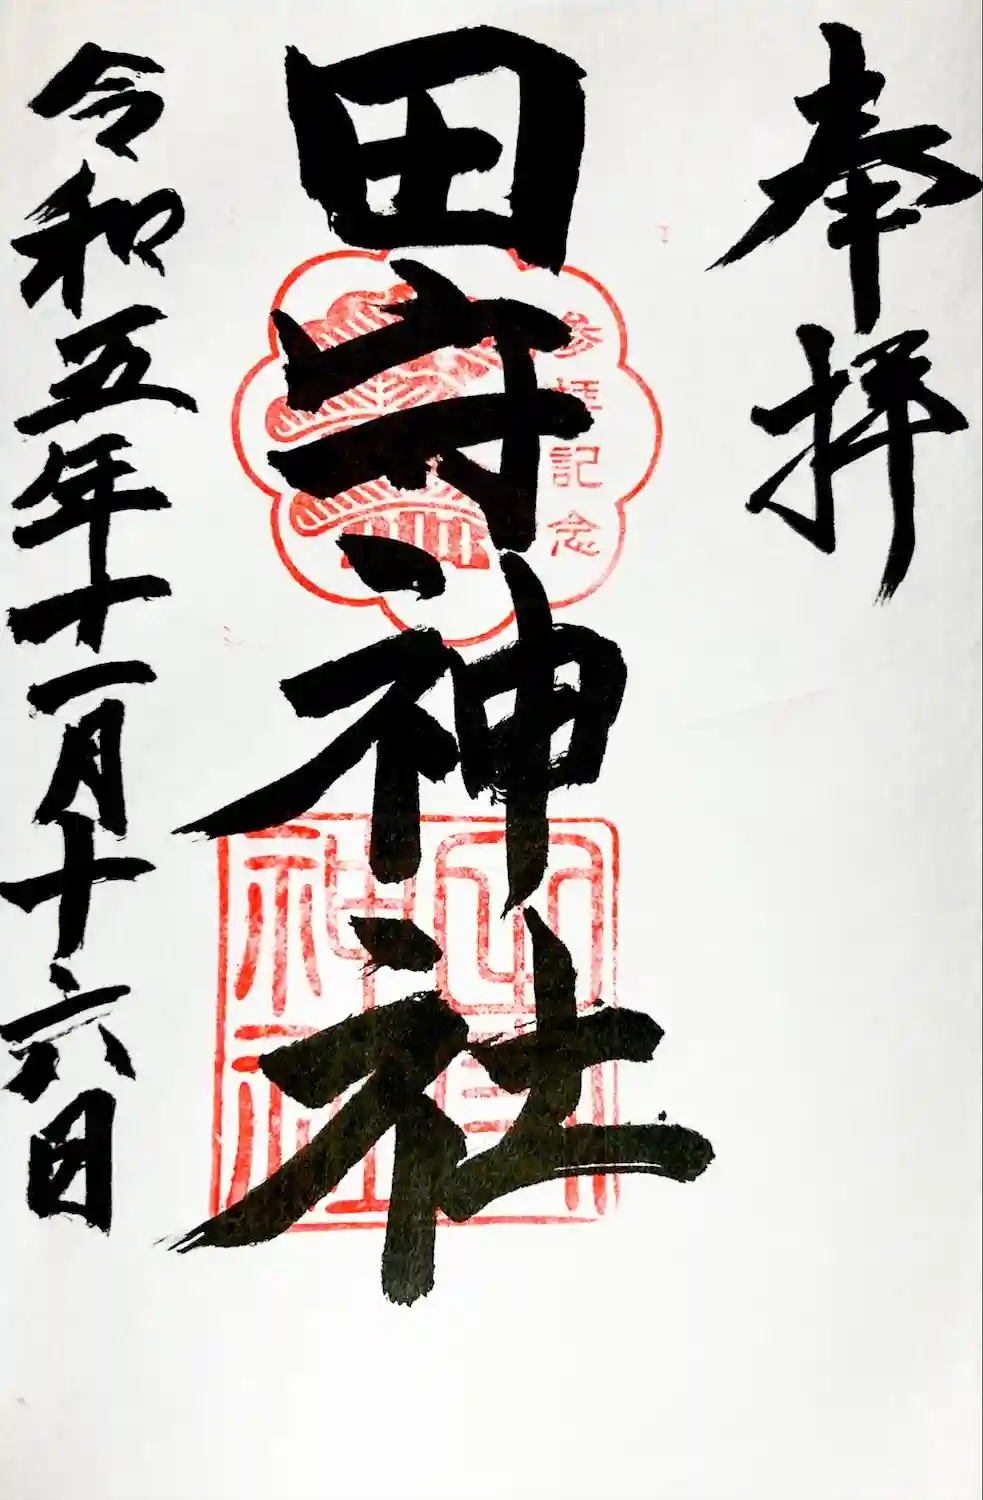 奉拝
田守神社
参拝記念
神社
令和五年十一月十六日